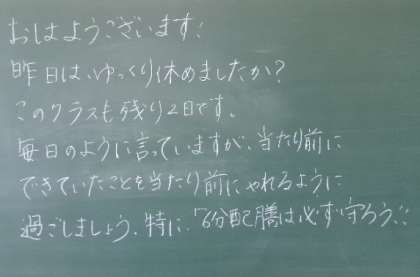 おはようございます!
昨日は、ゆっくり休めましたか?
このクラスも残り2日です。
毎日のように言っていますが、当たり前に
できていたことを当たり前にやれるように
過ごしましょう。特に、「6分配膳は必ず守ろう!!